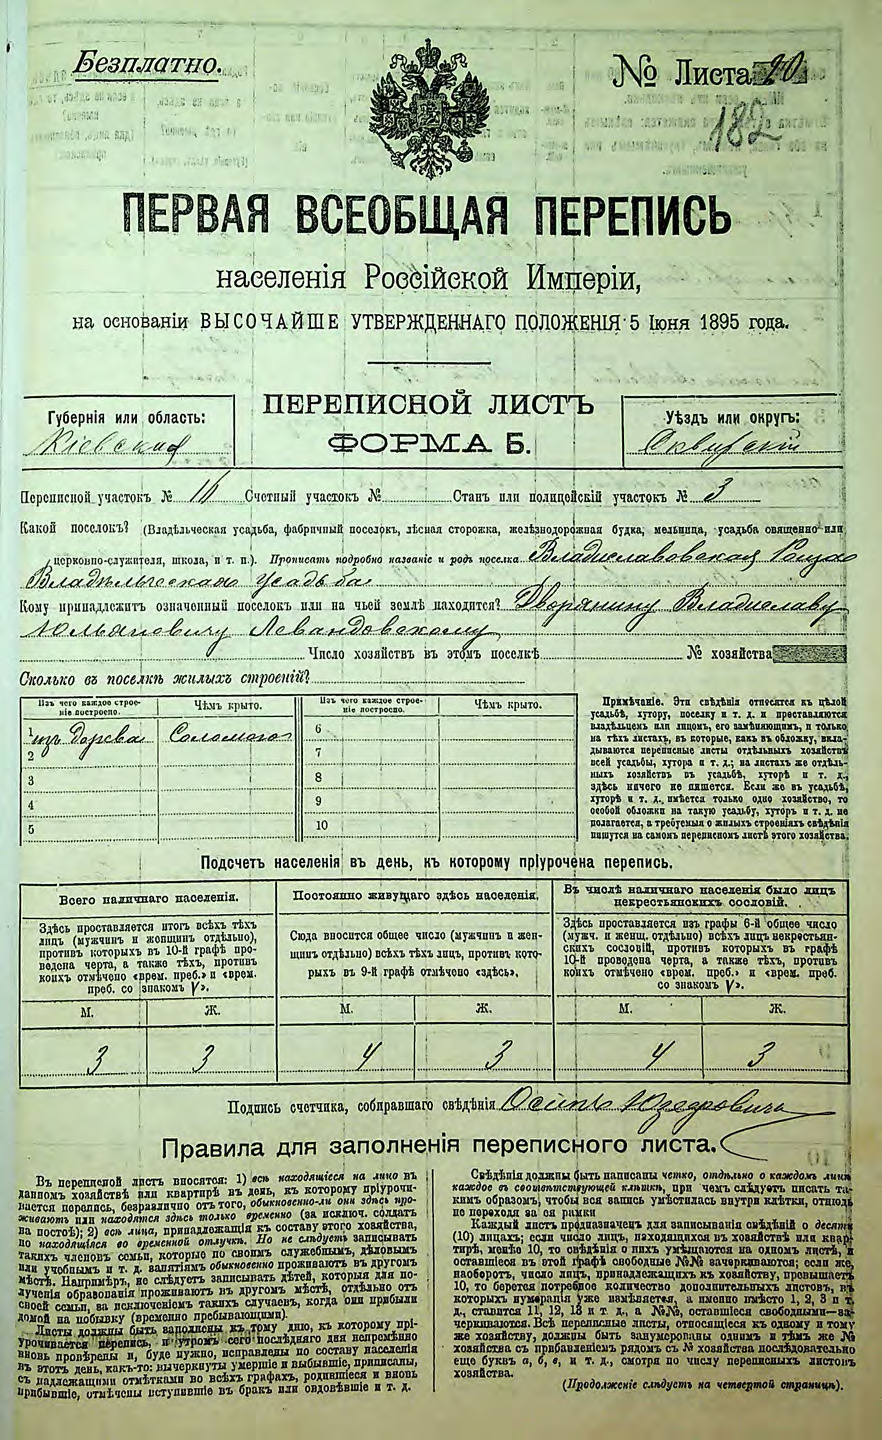 Безплатно.
№ Листа 20
182
ПЕРВАЯ ВСЕОБЩАЯ ПЕРЕПИСЬ
населенія Россійской Имперіи,
на основаніи ВЫСОЧАЙШЕ УТВЕРЖДЕННАГО ПОЛОЖЕНІЯ 5 Іюня 1895 года.
ПЕРЕПИСНОЙ ЛИСТЪ
ФОРМА Б.
Губернія или область:
Кіевская
Уѣздъ или округъ:
Сквирскій
Переписной участокъ № Счетный участокъ № Станъ или полицейскій участокъ № 3
Какой поселокъ? (Владѣльческая усадьба, фабричный поселокъ, лѣсная сторожка, желѣзнодорожная будка, мельница, усадьба священно- или
церковно-служителя, школа, и т. п.). Прописать подробно названіе и родъ поселка Владиславовская Роща
Владѣльческая усадьба
Кому принадлежитъ означенный поселокъ или на чьей землѣ находится? Дворянину Владиславу
Юльяновичу Левандовскому
Число хозяйствъ въ этомъ поселкѣ № хозяйства
Сколько въ поселкѣ жилыхъ строеній?
Изъ чего каждое строе-
ніе построено.
Чѣмъ крыто.
Изъ чего каждое строе-
ніе построено.
Чѣмъ крыто.
1 изъ дерева Соломою 6
2 7
3 8
4 9
5 10
Примѣчаніе. Эти свѣдѣнія относятся къ цѣлой
усадьбѣ, хутору, поселку и т. д. и проставляются
владѣльцемъ или лицомъ, его замѣняющимъ, и только
на тѣхъ листахъ, въ которые, какъ въ обложку, вкла-
дываются переписные листы отдѣльныхъ хозяйствъ
всей усадьбы, хутора и т. д.; на листахъ же отдѣль-
ныхъ хозяйствъ въ усадьбѣ, хуторѣ и т. д.,
здѣсь ничего не пишется. Если же въ усадьбѣ,
хуторѣ и т. д., имѣется только одно хозяйство, то
особой обложки на такую усадьбу, хуторъ и т. д. не
полагается, а требуемыя о жилыхъ строеніяхъ свѣдѣнія
пишутся на самомъ переписномъ листѣ этого хозяйства.
Подсчетъ населенія въ день, къ которому пріурочена перепись.
Всего наличнаго населенія.
Здѣсь проставляется итогъ всѣхъ тѣхъ
лицъ (мужчинъ и женщинъ отдѣльно),
противъ которыхъ въ 10-й графѣ про-
ведена черта, а также тѣхъ, противъ
коихъ отмѣчено «врем. преб.» и «врем.
преб. со знакомъ V».
Постоянно живущаго здѣсь населенія.
Сюда вносится общее число (мужчинъ и жен-
щинъ отдѣльно) всѣхъ тѣхъ лицъ, противъ кото-
рыхъ въ 9-й графѣ отмѣчено «здѣсь».
Въ числѣ наличнаго населенія было лицъ
некрестьянскихъ сословій.
Здѣсь проставляется изъ графы 6-й общее число
(мужч. и женщ. отдѣльно) всѣхъ лицъ некрестьян-
скихъ сословій, противъ которыхъ въ графѣ
10-й проведена черта, а также тѣхъ, противъ
коихъ отмѣчено «врем. преб.» и «врем. преб.
со знакомъ V».
М. Ж. М. Ж. М. Ж.
3 3 4 3 4 3
Подпись счетчика, собиравшаго свѣдѣнія Осипъ
Правила для заполненія переписного листа.
Въ переписной листъ вносятся: 1) всѣ находящіеся на лицо въ
данномъ хозяйствѣ или квартирѣ въ день, къ которому пріурочи-
вается перепись, безразлично отъ того, обыкновенно-ли они здѣсь про-
живаютъ или находятся здѣсь только временно (за исключ. солдатъ
на постоѣ); 2) всѣ лица, принадлежащія къ составу этого хозяйства,
но находящіяся во временной отлучкѣ. Но не слѣдуетъ записывать
такихъ членовъ семьи, которые по своимъ служебнымъ, дѣловымъ
или учебнымъ и т. д. занятіямъ обыкновенно проживаютъ въ другомъ
мѣстѣ. Напримѣръ, не слѣдуетъ записывать дѣтей, которыя для по-
лученія образованія проживаютъ въ другомъ мѣстѣ, отдѣльно отъ
своей семьи, за исключеніемъ такихъ случаевъ, когда они прибыли
домой на побывку (временно пребывающими).
Листы должны быть заполнены къ тому дню, къ которому прі-
урочивается перепись, и утромъ сего послѣдняго дня непремѣнно
вновь провѣрены и, буде нужно, исправлены по составу населенія
въ этотъ день, какъ-то: вычеркнуты умершіе и выбывшіе, приписаны,
съ надлежащими отмѣтками во всѣхъ графахъ, родившіеся и вновь
прибывшіе, отмѣчены вступившіе въ бракъ или овдовѣвшіе и т. д.
Свѣдѣнія должны быть написаны четко, отдѣльно о каждомъ лицѣ
каждое въ соотвѣтствующей клѣткѣ, при чемъ слѣдуетъ писать та-
кимъ образомъ, чтобы вся запись умѣстилась внутри клѣтки, отнюдь
не переходя за ея рамки
Каждый листъ предназначенъ для записыванія свѣдѣній о десяти
(10) лицахъ; если число лицъ, находящихся въ хозяйствѣ или квар-
тирѣ, менѣе 10, то свѣдѣнія о нихъ умѣщаются на одномъ листѣ, а
оставшіеся въ этой графѣ свободные №№ зачеркиваются; если же,
наоборотъ, число лицъ, принадлежащихъ къ хозяйству, превышаетъ
10, то берется потребное количество дополнительныхъ листовъ, въ
которыхъ нумерація уже измѣняется, а именно вмѣсто 1, 2, 3 и т.
д., ставится 11, 12, 13 и т. д., а №№, оставшіеся свободными—за-
черкиваются. Всѣ переписные листы, относящіеся къ одному и тому
же хозяйству, должны быть занумерованы однимъ и тѣмъ же №
хозяйства съ прибавленіемъ рядомъ съ № хозяйства послѣдовательно
еще буквъ а, б, в, и т. д., смотря по числу переписныхъ листовъ
хозяйства.
(Продолженіе слѣдуетъ на четвертой страницѣ).